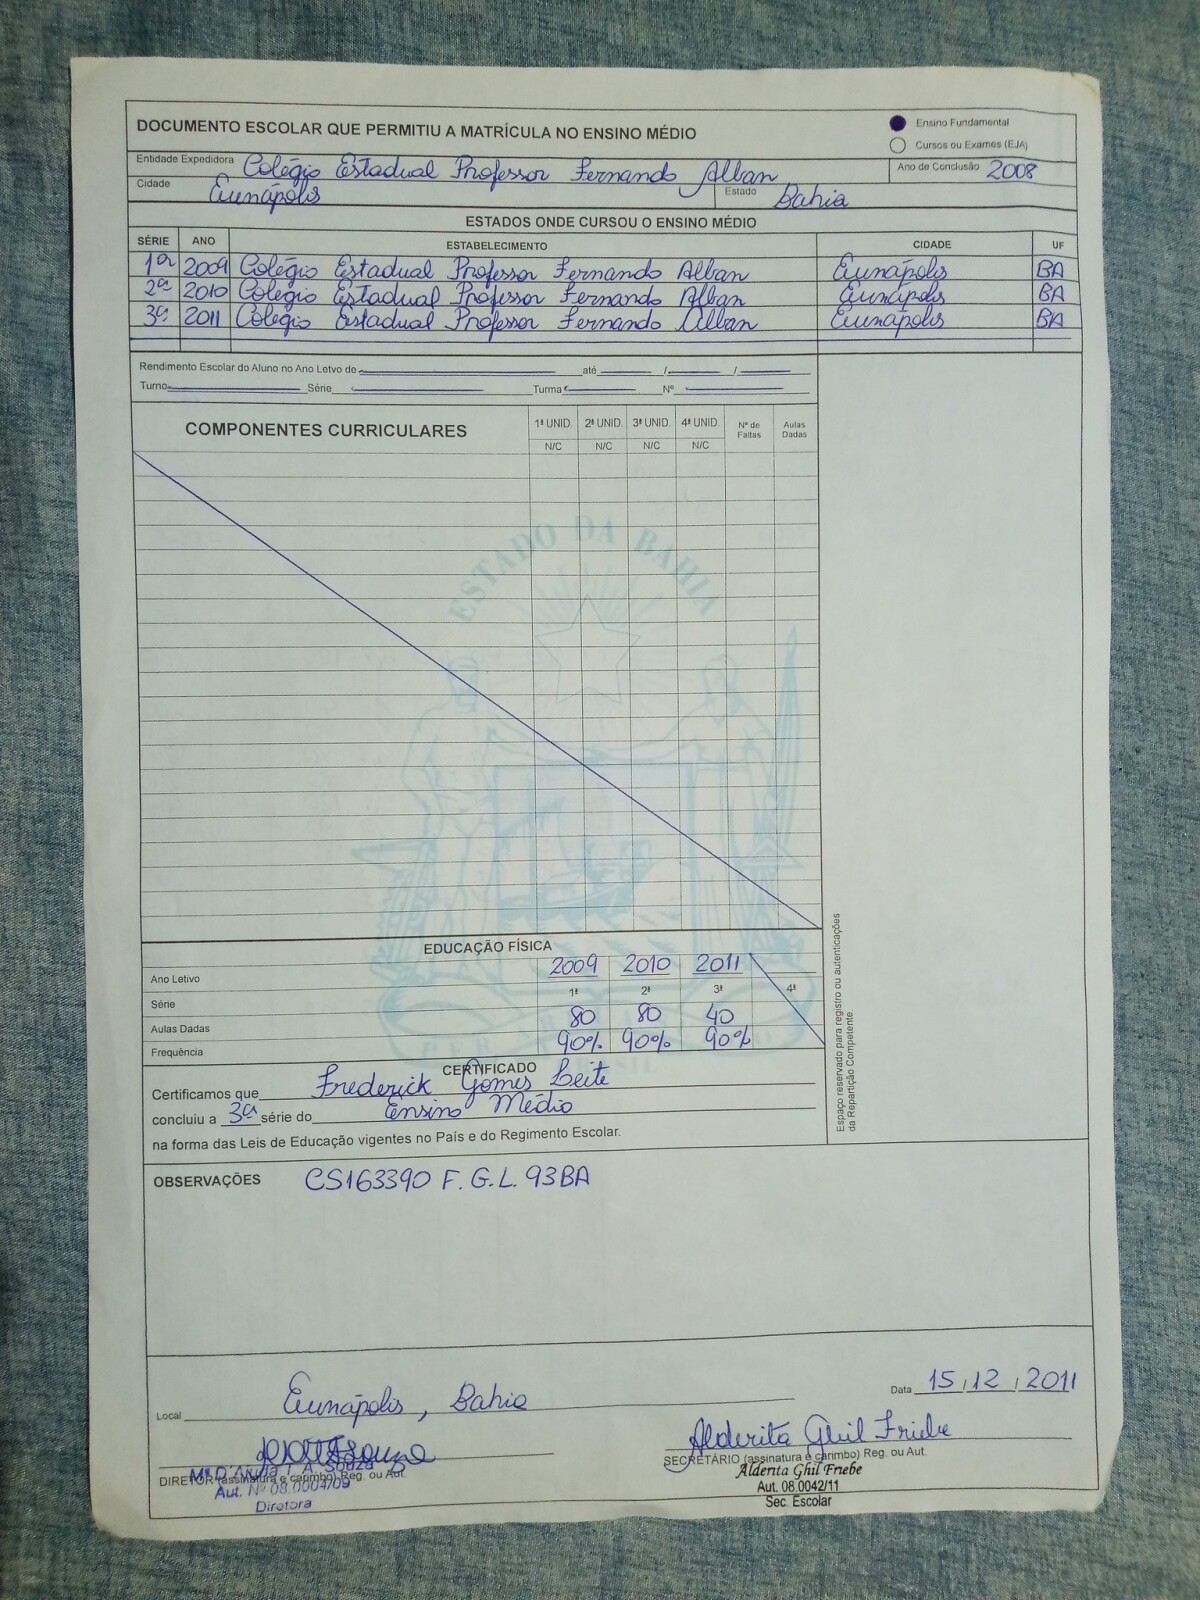 DOCUMENTO ESCOLAR QUE PERMITIU A MATRÍCULA NO ENSINO MÉDIO
Ensino Fundamental
Cursos ou Exames (EJA)
Entidade Expedidora Colégio Estadual Professor Fernando Alban
Ano de Conclusão 2008
Cidade Eunápolis
Estado Bahia
ESTADOS ONDE CURSOU O ENSINO MÉDIO
SÉRIE ANO ESTABELECIMENTO CIDADE UF
1ª 2009 Colégio Estadual Professor Fernando Alban Eunápolis BA
2ª 2010 Colégio Estadual Professor Fernando Alban Eunápolis BA
3ª 2011 Colégio Estadual Professor Fernando Alban Eunápolis BA
Rendimento Escolar do Aluno no Ano Letvo de até / /
Turno Série Turma Nº
COMPONENTES CURRICULARES 1ª UNID. 2ª UNID. 3ª UNID. 4ª UNID. Nº de Faltas Aulas Dadas
N/C N/C N/C N/C
ESTADO DA BAHIA
EDUCAÇÃO FÍSICA
Ano Letivo 2009 2010 2011
Série 1ª 2ª 3ª 4ª
Aulas Dadas 80 80 40
Frequência 90% 90% 90%
Espaço reservado para registro ou autenticações
da Repartição Competente
CERTIFICADO
Certificamos que Frederick Gomes Leite
concluiu a 3ª série do Ensino Médio
na forma das Leis de Educação vigentes no País e do Regimento Escolar.
OBSERVAÇÕES CS163390 F. G. L. 93BA
Local Eunápolis, Bahia
Data 15/12/2011
Alderita Ghil Friebe
DIRETOR (assinatura e carimbo) Reg. ou Aut.
Aut. Nº 08.0004/09
Diretora
SECRETÁRIO (assinatura e carimbo) Reg. ou Aut.
Alderita Ghil Friebe
Aut. 08.0042/11
Sec. Escolar